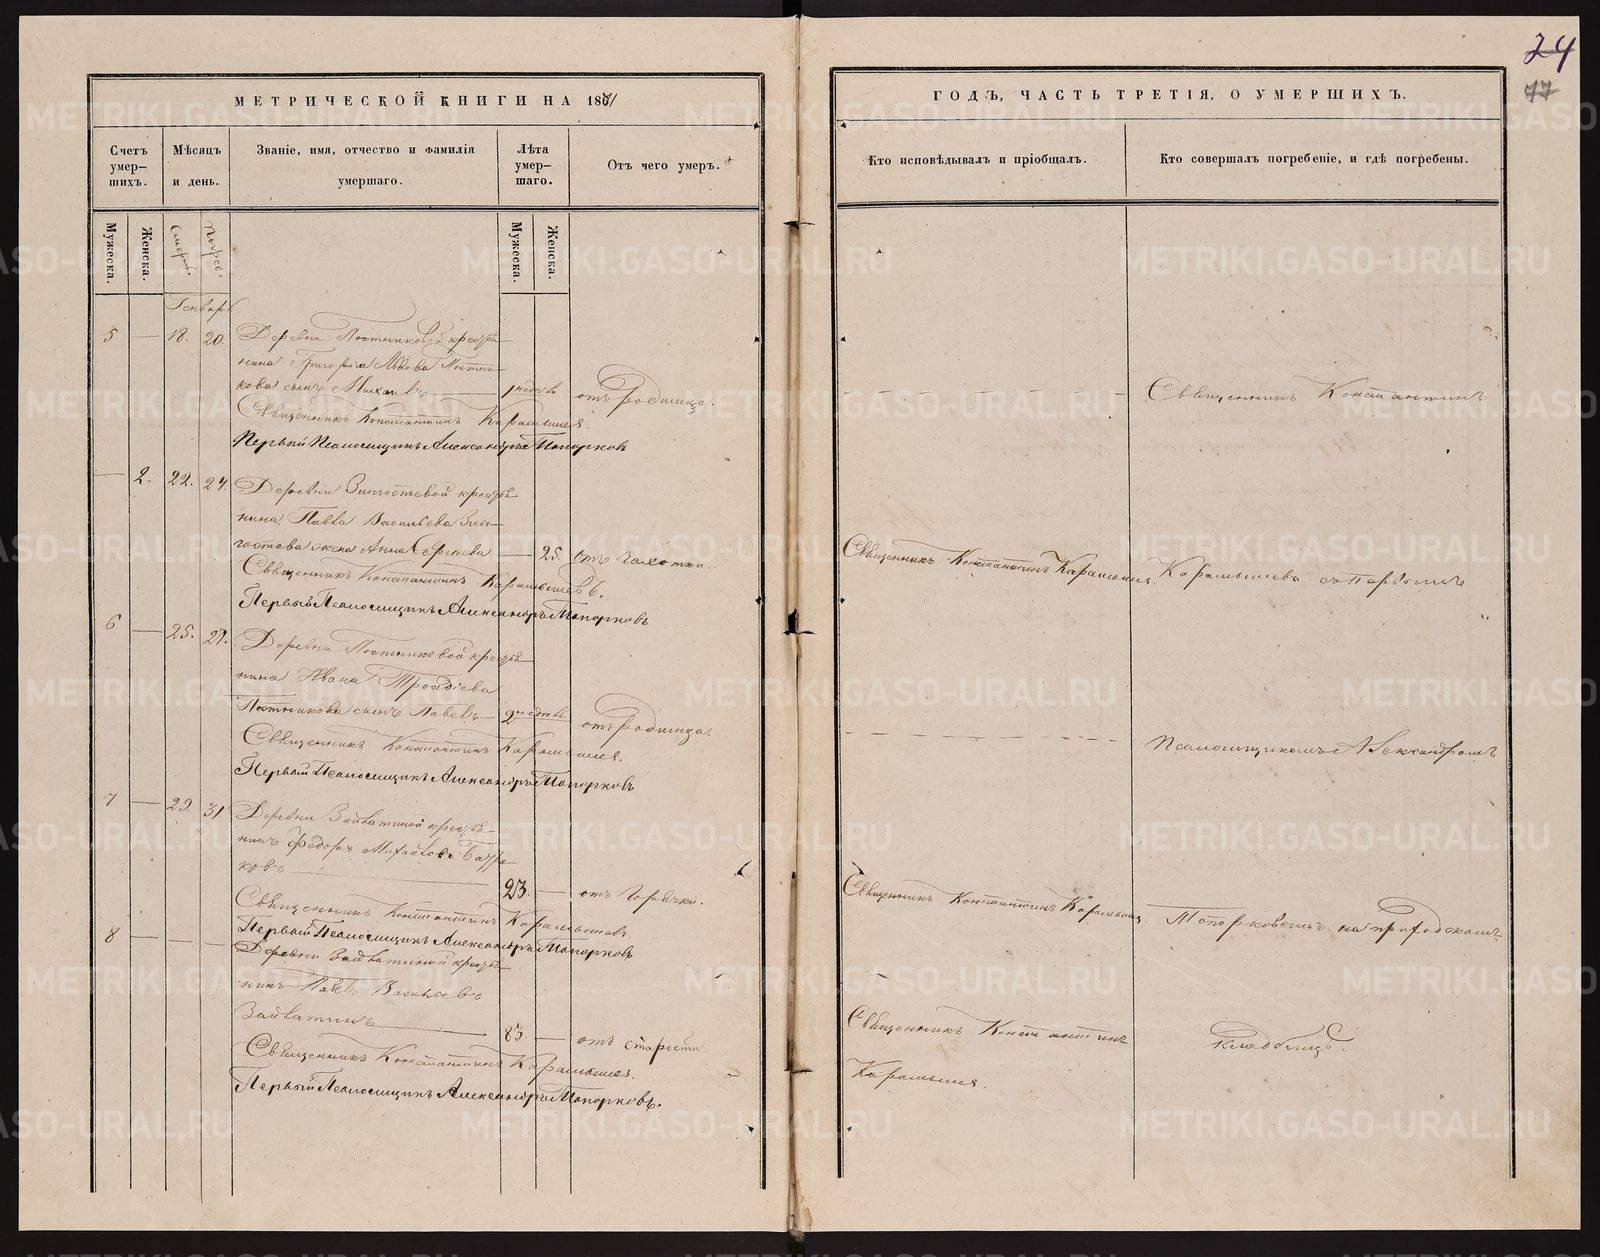 24
77
МЕТРИЧЕСКОЙ КНИГИ НА 1871
Счетъ умер-
шихъ.
Мѣсяцъ
и день.
Званіе, имя, отчество и фамилія
умершаго.
Лѣта
умер-
шаго.
Отъ чего умеръ.
Мужеска.
Женска.
Смерт.
Погреб.
Мужеска.
Женска.
Генварь
5 — 18. 20. Деревни Постниковой крестья-
нина Григорія Львова Постни-
кова сынъ Михаилъ — отъ родимца.
Священникъ Константинъ Карамышев.
Первый Псаломщикъ Александръ Топорковъ
— 2. 22. 24. Деревни
нина Павла Васильева
жена Анна Сергіева — 25. отъ чахотки.
Священникъ Константинъ Карамышевъ.
Первый Псаломщикъ Александръ Топорковъ
6 — 25. 27. Деревни Постниковой крестья-
нина Ивана
Постникова сынъ Павелъ — отъ родимца.
Священникъ Константинъ Карамышев.
Первый Псаломщикъ Александръ Топорковъ
7 — 29. 31 Деревни
нинъ Федоръ Михайловъ
ковъ — 23. — отъ горячки.
Священникъ Константинъ Карамышевъ.
Первый Псаломщикъ Александръ Топорковъ
8 — — — Деревни крестья-
нинъ Павелъ Васильевъ
— 83 — отъ старости.
Священникъ Константинъ Карамышев.
Первый Псаломщикъ Александръ Топорковъ.
ГОДЪ, ЧАСТЬ ТРЕТІЯ, О УМЕРШИХЪ.
Кто исповѣдывалъ и пріобщалъ.
Кто совершалъ погребеніе, и гдѣ погребены.
Священникъ Константинъ
Священникъ Константинъ Карамышев Карамышевъ съ Первымъ
Псаломщикомъ Александромъ
Священникъ Константинъ Карамышев Топорковымъ на приходскомъ
Священникъ Константинъ кладбищѣ.
Карамышев.
METRIKI.GASO-URAL.RU